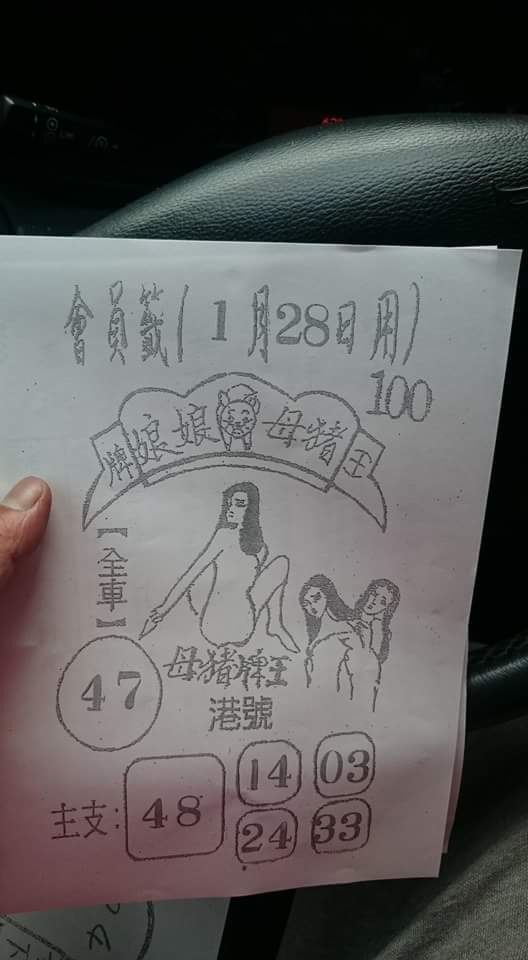 會員籤(1月28日用)
100
牌娘娘母猪王
【全車】
47
母猪牌王
港號
14 03
主支: 48
24 33